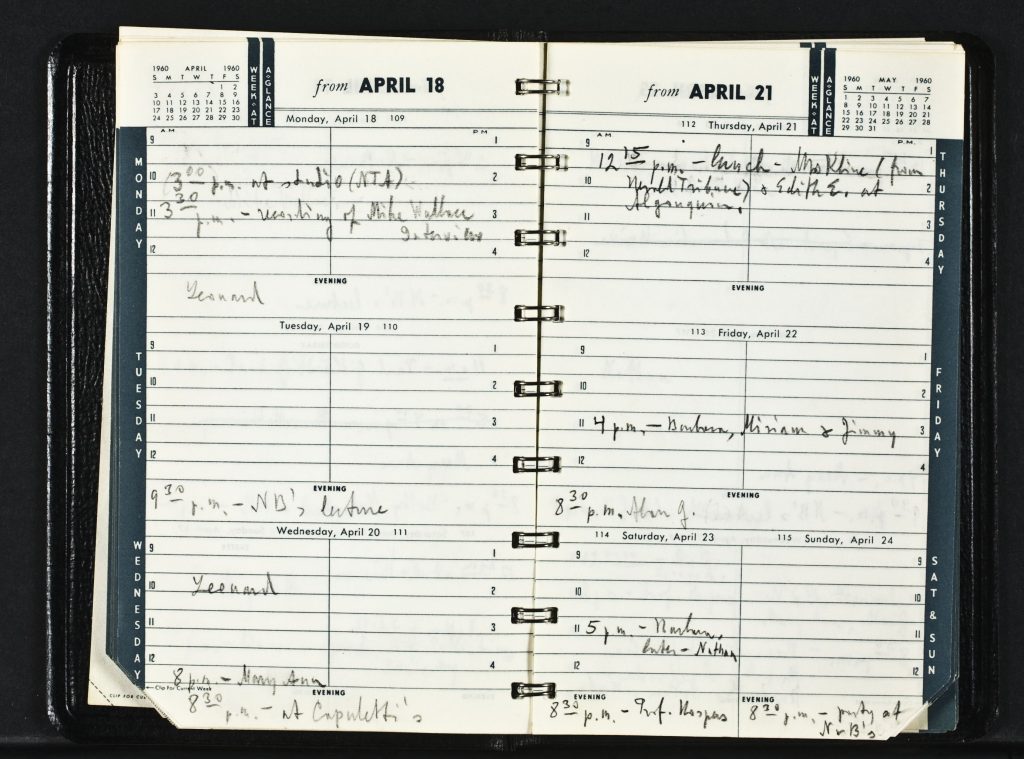 1960 APRIL
S M T W T F S
1 2
3 4 5 6 7 8 9
10 11 12 13 14 15 16
17 18 19 20 21 22 23
24 25 26 27 28 29 30
WEEK-AT
A-GLANCE
from APRIL 18
Monday, April 18 109
MONDAY
A M
P M
9
1
10
2
11
3
12
4
3 00 p.m. at studio (NTA)
3 30 p.m. - recording of Mike Wallace
Interview
EVENING
Leonard
Tuesday, April 19 110
TUESDAY
9
1
10
2
11
3
12
4
EVENING
9 30 p.m. - NB's lecture
Wednesday, April 20 111
WEDNESDAY
9
1
10
2
11
3
12
4
Leonard
8 p.m. - Mary Ann
Clip For Current Week
EVENING
CLIP FOR CU
8 30 p.m. - at Capuletti's
from APRIL 21
WEEK-AT
A-GLANCE
1960 MAY 1960
S M T W T F S
1 2 3 4 5 6 7
8 9 10 11 12 13 14
15 16 17 18 19 20 21
22 23 24 25 26 27 28
29 30 31
112 Thursday, April 21
THURSDAY
A M
P M
9
1
10
2
11
3
12
4
12 15 p.m. - lunch - Mrs Kline (from
Herald Tribune) & Edith E. at
Algonquin.
EVENING
113 Friday, April 22
FRIDAY
9
1
10
2
11
3
12
4
4 p.m. - Barbara, Miriam & Jimmy
EVENING
8 30 p.m. Alan G.
114 Saturday, April 23
115 Sunday, April 24
SAT & SUN
9
9
10
10
11
11
12
12
5 p.m. - Barbara,
later - Nathan
EVENING
EVENING
8 30 p.m. - Prof. Hospers
8 30 p.m. - party at
N & B's